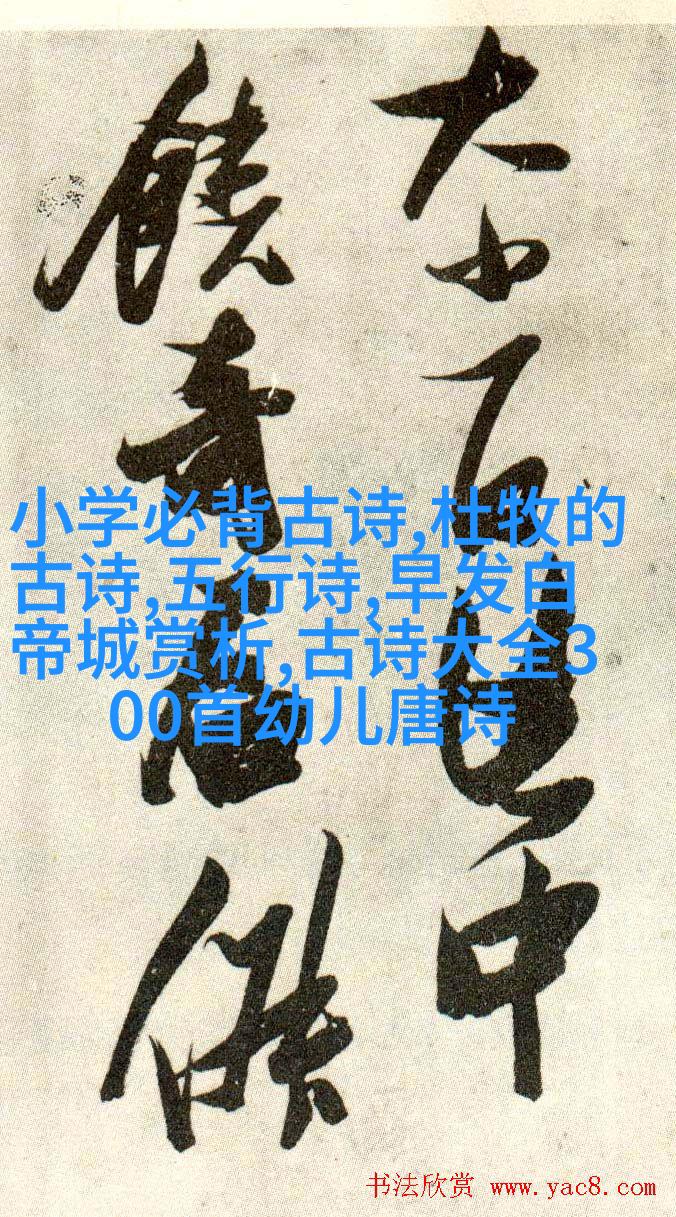 大小中
饒奇
小学必背古诗,杜牧的
古诗,五行诗,早发白
帝城赏析,古诗大全3
00首幼儿唐诗
书法欣赏 www.yac8.com